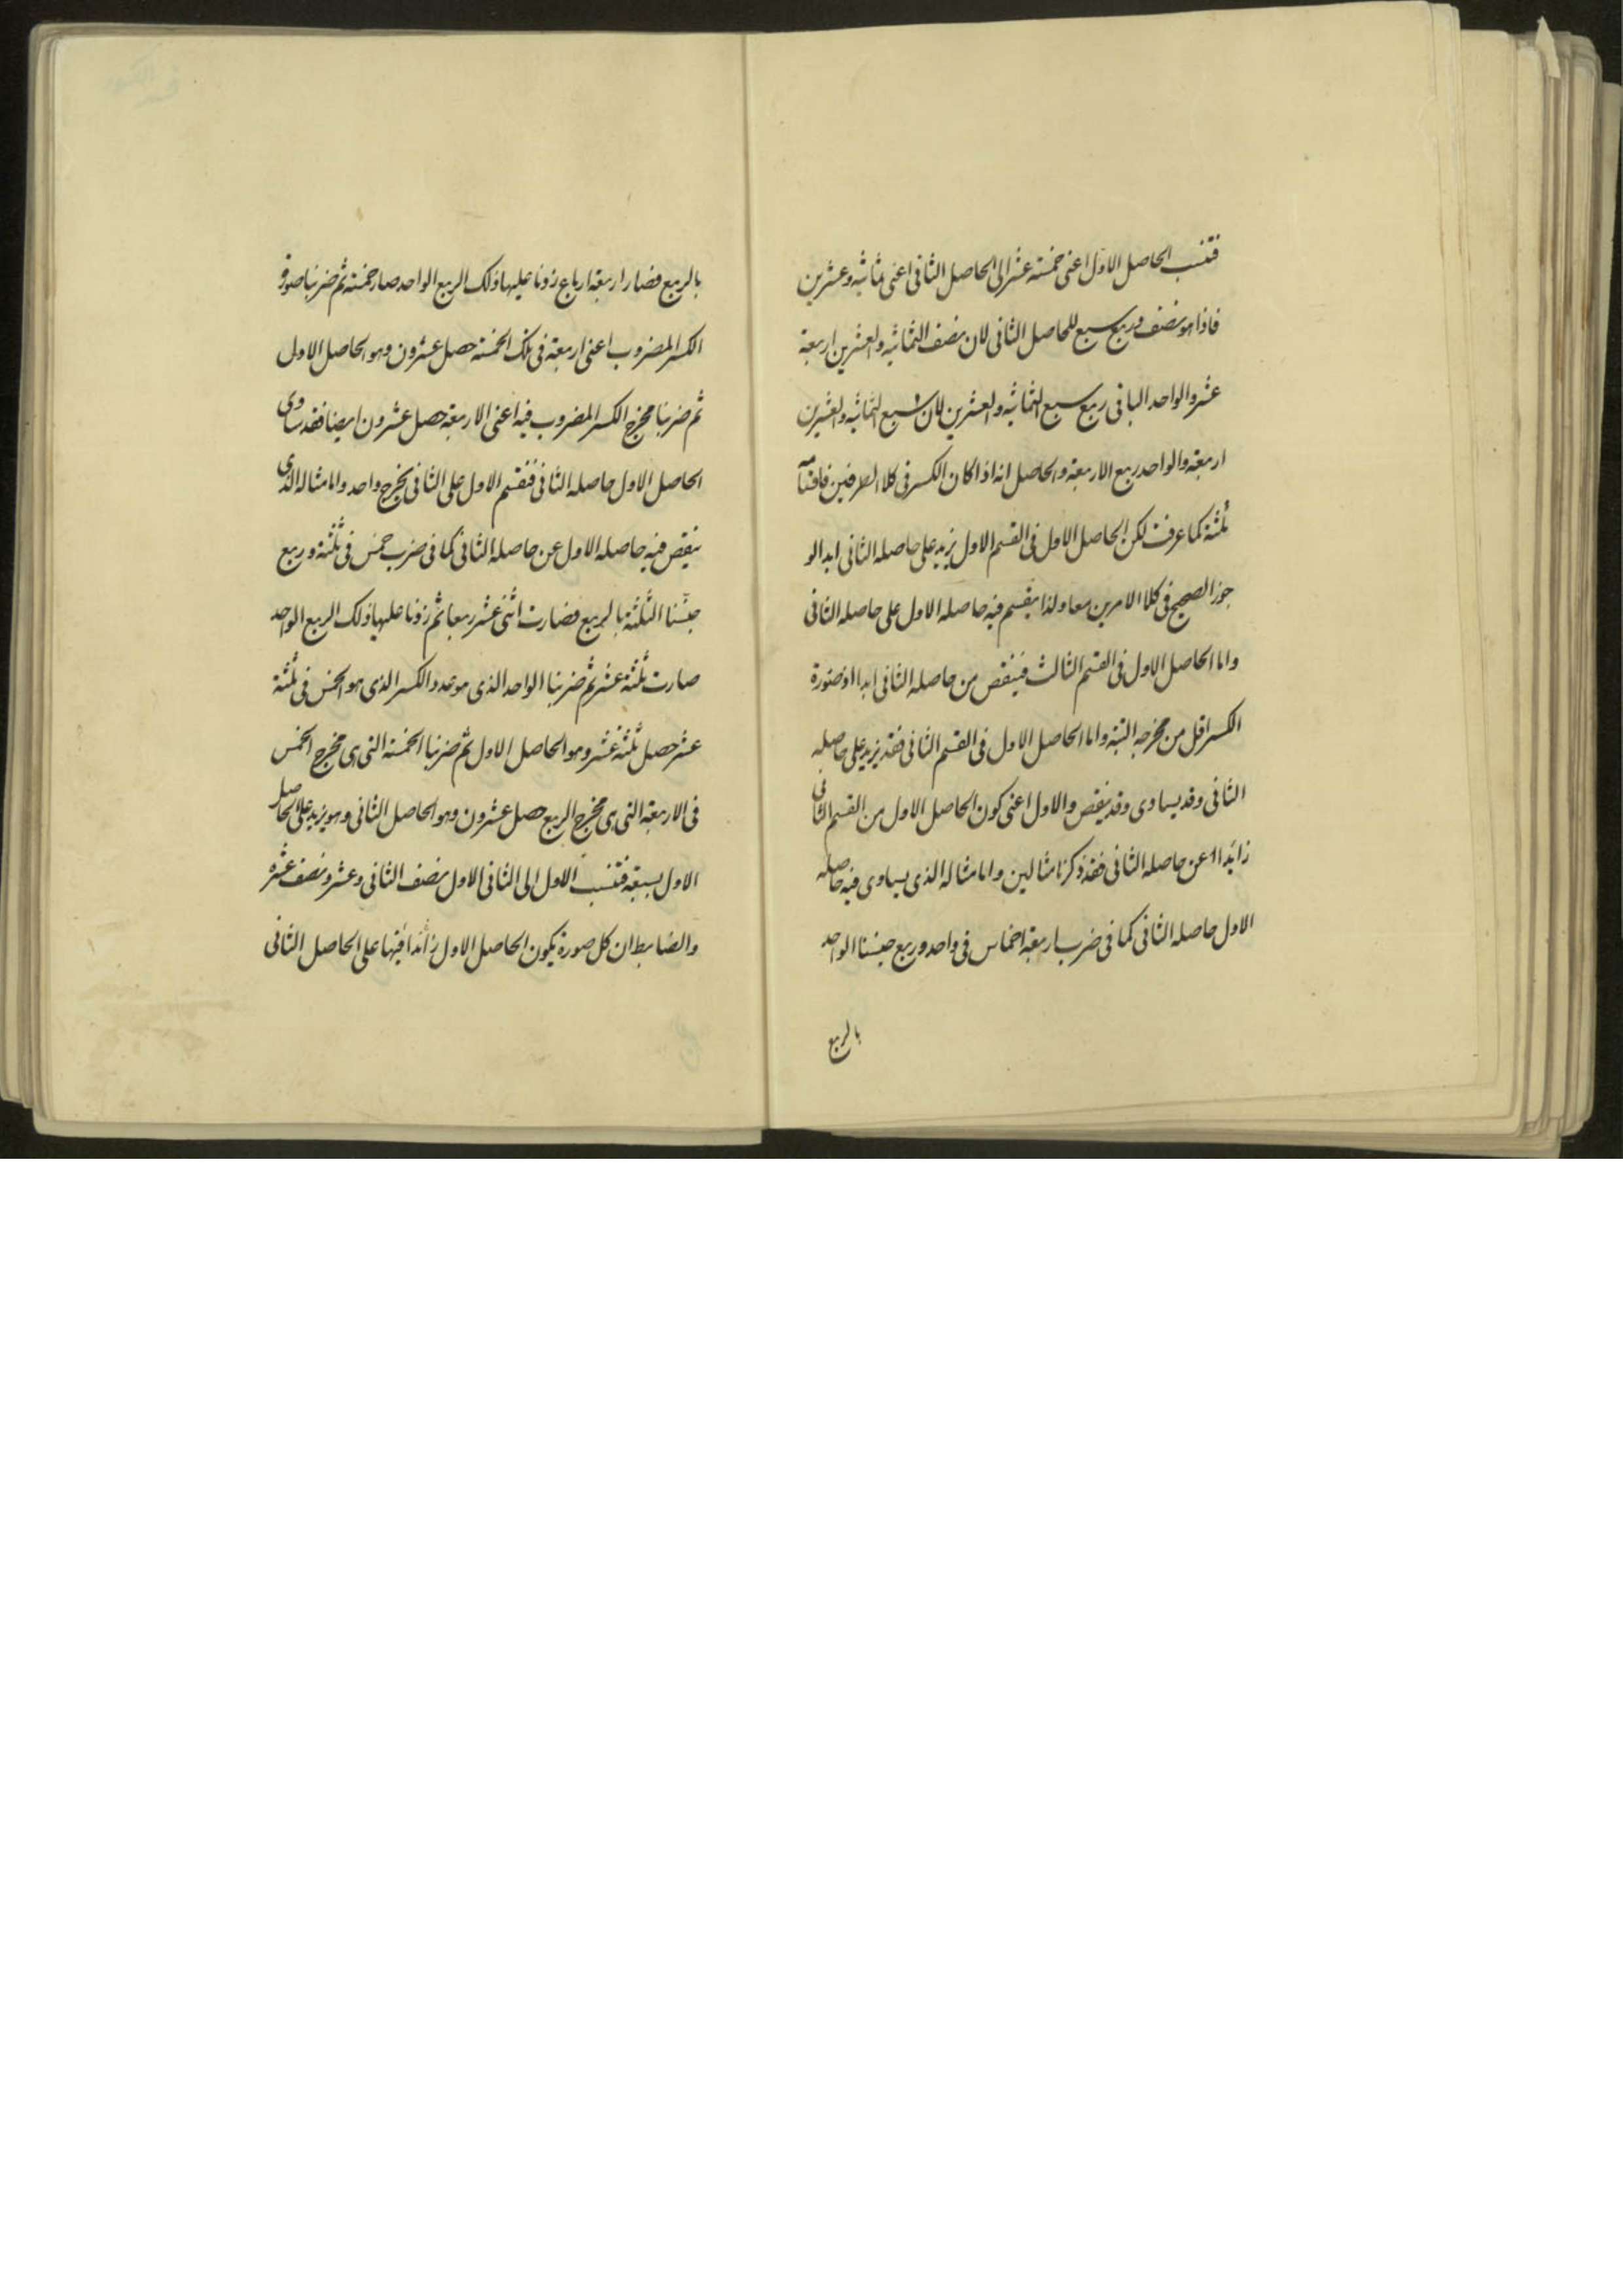 فتنسب الحاصل الاول اعنى خمسة عشر الى الحاصل الثانى اعنى ثمانيه وعشرين
فاذا هو نصف وربع سبع للحاصل الثانى لان نصف الثمانيه والعشرين اربعة
عشر والواحد الباقى ربع سبع الثمانيه والعشرين لان سبع الثمانيه والعشرين
اربعة والواحد ربع الاربعة والحاصل انه اذا كان الكسر فى كلا الطرفين فاقسامه
ثلثة كما عرفت لكن الحاصل الاول فى القسم الاول يزيد على حاصله الثانى ابدا لو
جود الصحيح فى كلا الامرين معا ولذا يقسم فيه حاصله الاول على حاصله الثانى
واما الحاصل الاول فى القسم الثالث فينقص من حاصله الثانى ابدا اذ صورة
الكسر اقل من مخرجه البتة واما الحاصل الاول فى القسم الثانى فقد يزيد على حاصله
الثانى وقد يساوى وقد ينقص والاول اعنى كون الحاصل الاول من القسم الثانى
زائدا عن حاصله الثانى فقد ذكرنا مثالين واما مثاله الذى يساوى فيه حاصله
الاول حاصله الثانى كما فى ضرب اربعة اخماس فى واحد وربع جنسنا الواحد
بالربع
بالربع فصار اربعة ارباع زدنا عليها ذلك الربع الواحد صار خمسة ثم ضربنا صورة
الكسر المضروب اعنى اربعة فى تلك الخمسة حصل عشرون وهو الحاصل الاول
ثم ضربنا مخرج الكسر المضروب فيه اعنى الاربعة حصل عشرون ايضا فقد ساوى
الحاصل الاول حاصله الثانى فنقسم الاول على الثانى يخرج واحد واما مثاله الذى
ينقص فيه حاصله الاول عن حاصله الثانى كما فى ضرب خمس فى ثلثة وربع
جنسنا الثلثة بالربع فصارت اثنى عشر ربعا ثم زدنا عليها ذلك الربع الواحد
صارت ثلثة عشر ثم ضربنا الواحد الذى هو عدد الكسر الذى هو الخمس فى ثلثة
عشر حصل ثلثة عشر وهو الحاصل الاول ثم ضربنا الخمسة التى هى مخرج الخمس
فى الاربعة التى هى مخرج الربع حصل عشرون وهو الحاصل الثانى وهو يزيد على الحاصل
الاول بسبعة فتنسب الاول الى الثانى الاول نصف الثانى وعشر ونصف عشره
والضابط ان كل صورة يكون الحاصل الاول زائدا فيها على الحاصل الثانى